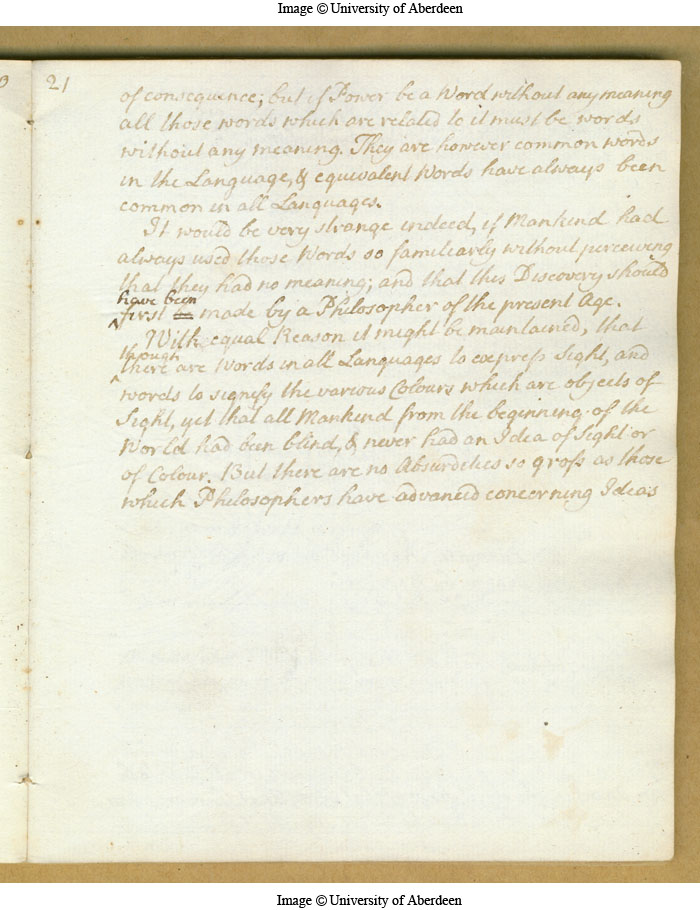 Image © University of Aberdeen
21
of consequence; but if Power be a Word without any meaning
all those words which are related to it must be words
without any meaning. They are however common words
in the Language, & equivalent Words have always been
common in all Languages.
It would be very strange indeed, if Mankind had
always used those Words so familiarly without perceiving
that they had no meaning; and that this Discovery should
have been
first made by a Philosopher of the present Age.
With equal Reason it might be maintained, that
though
there are Words in all Languages to express Sight, and
words to signify the various Colours which are objects of
Sight, yet that all Mankind from the beginning of the
World had been blind, & never had an Idea of Sight or
of Colour. But there are no Absurdities so gross as those
which Philosophers have advanced concerning Ideas
Image © University of Aberdeen